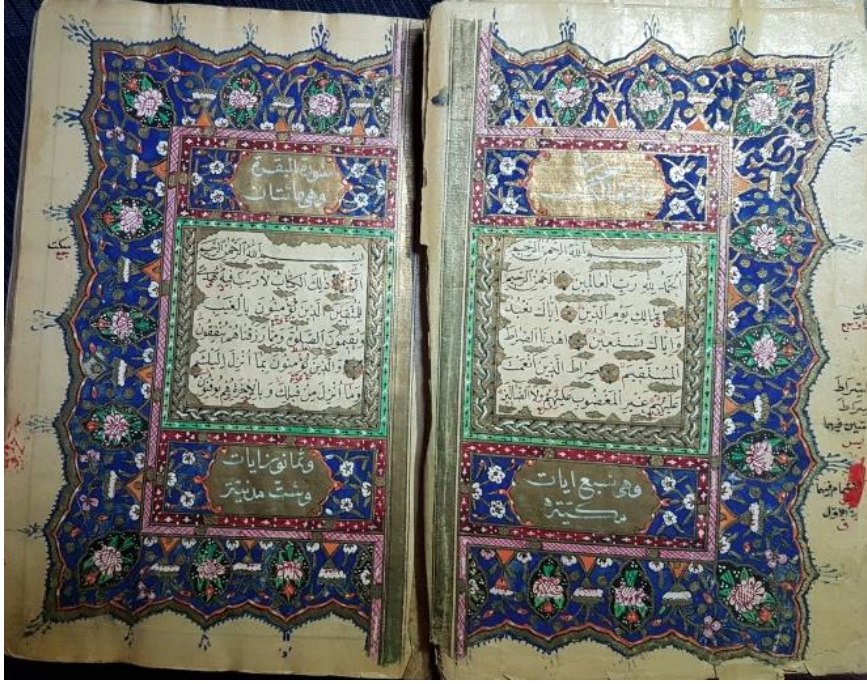 سورة
فاتحة الكتاب
بسم الله الرحمن الرحيم
الحمد لله رب العالمين الرحمن الرحيم
مالك يوم الدين إياك نعبد
وإياك نستعين اهدنا الصراط
المستقيم صراط الذين أنعمت
عليهم غير المغضوب عليهم ولا الضالين
وهي سبع ايات
مكية
صراط
فيها
فيها
سورة البقرة
وهي مائتان
بسم الله الرحمن الرحيم
الم ذلك الكتاب لا ريب فيه هدى
للمتقين الذين يؤمنون بالغيب
ويقيمون الصلوة ومما رزقناهم ينفقون
والذين يؤمنون بما أنزل إليك
وما أنزل من قبلك وبالآخرة هم يوقنون
وثمانون ايات
وست مدنية
سكت